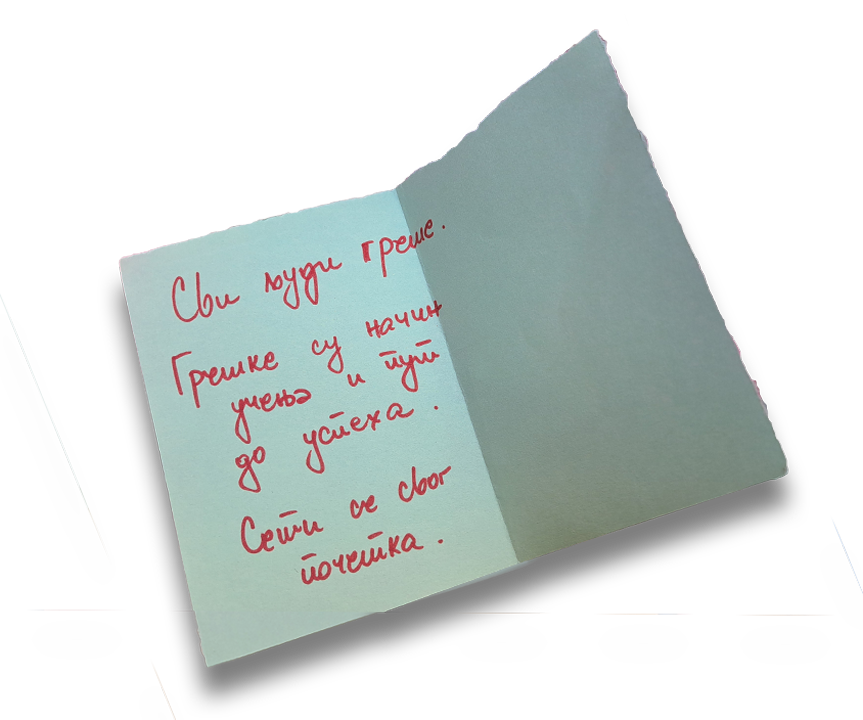 Сви људи греше.
Грешке су начин
учења и пут
до успеха.
Сети се свог
почетка.